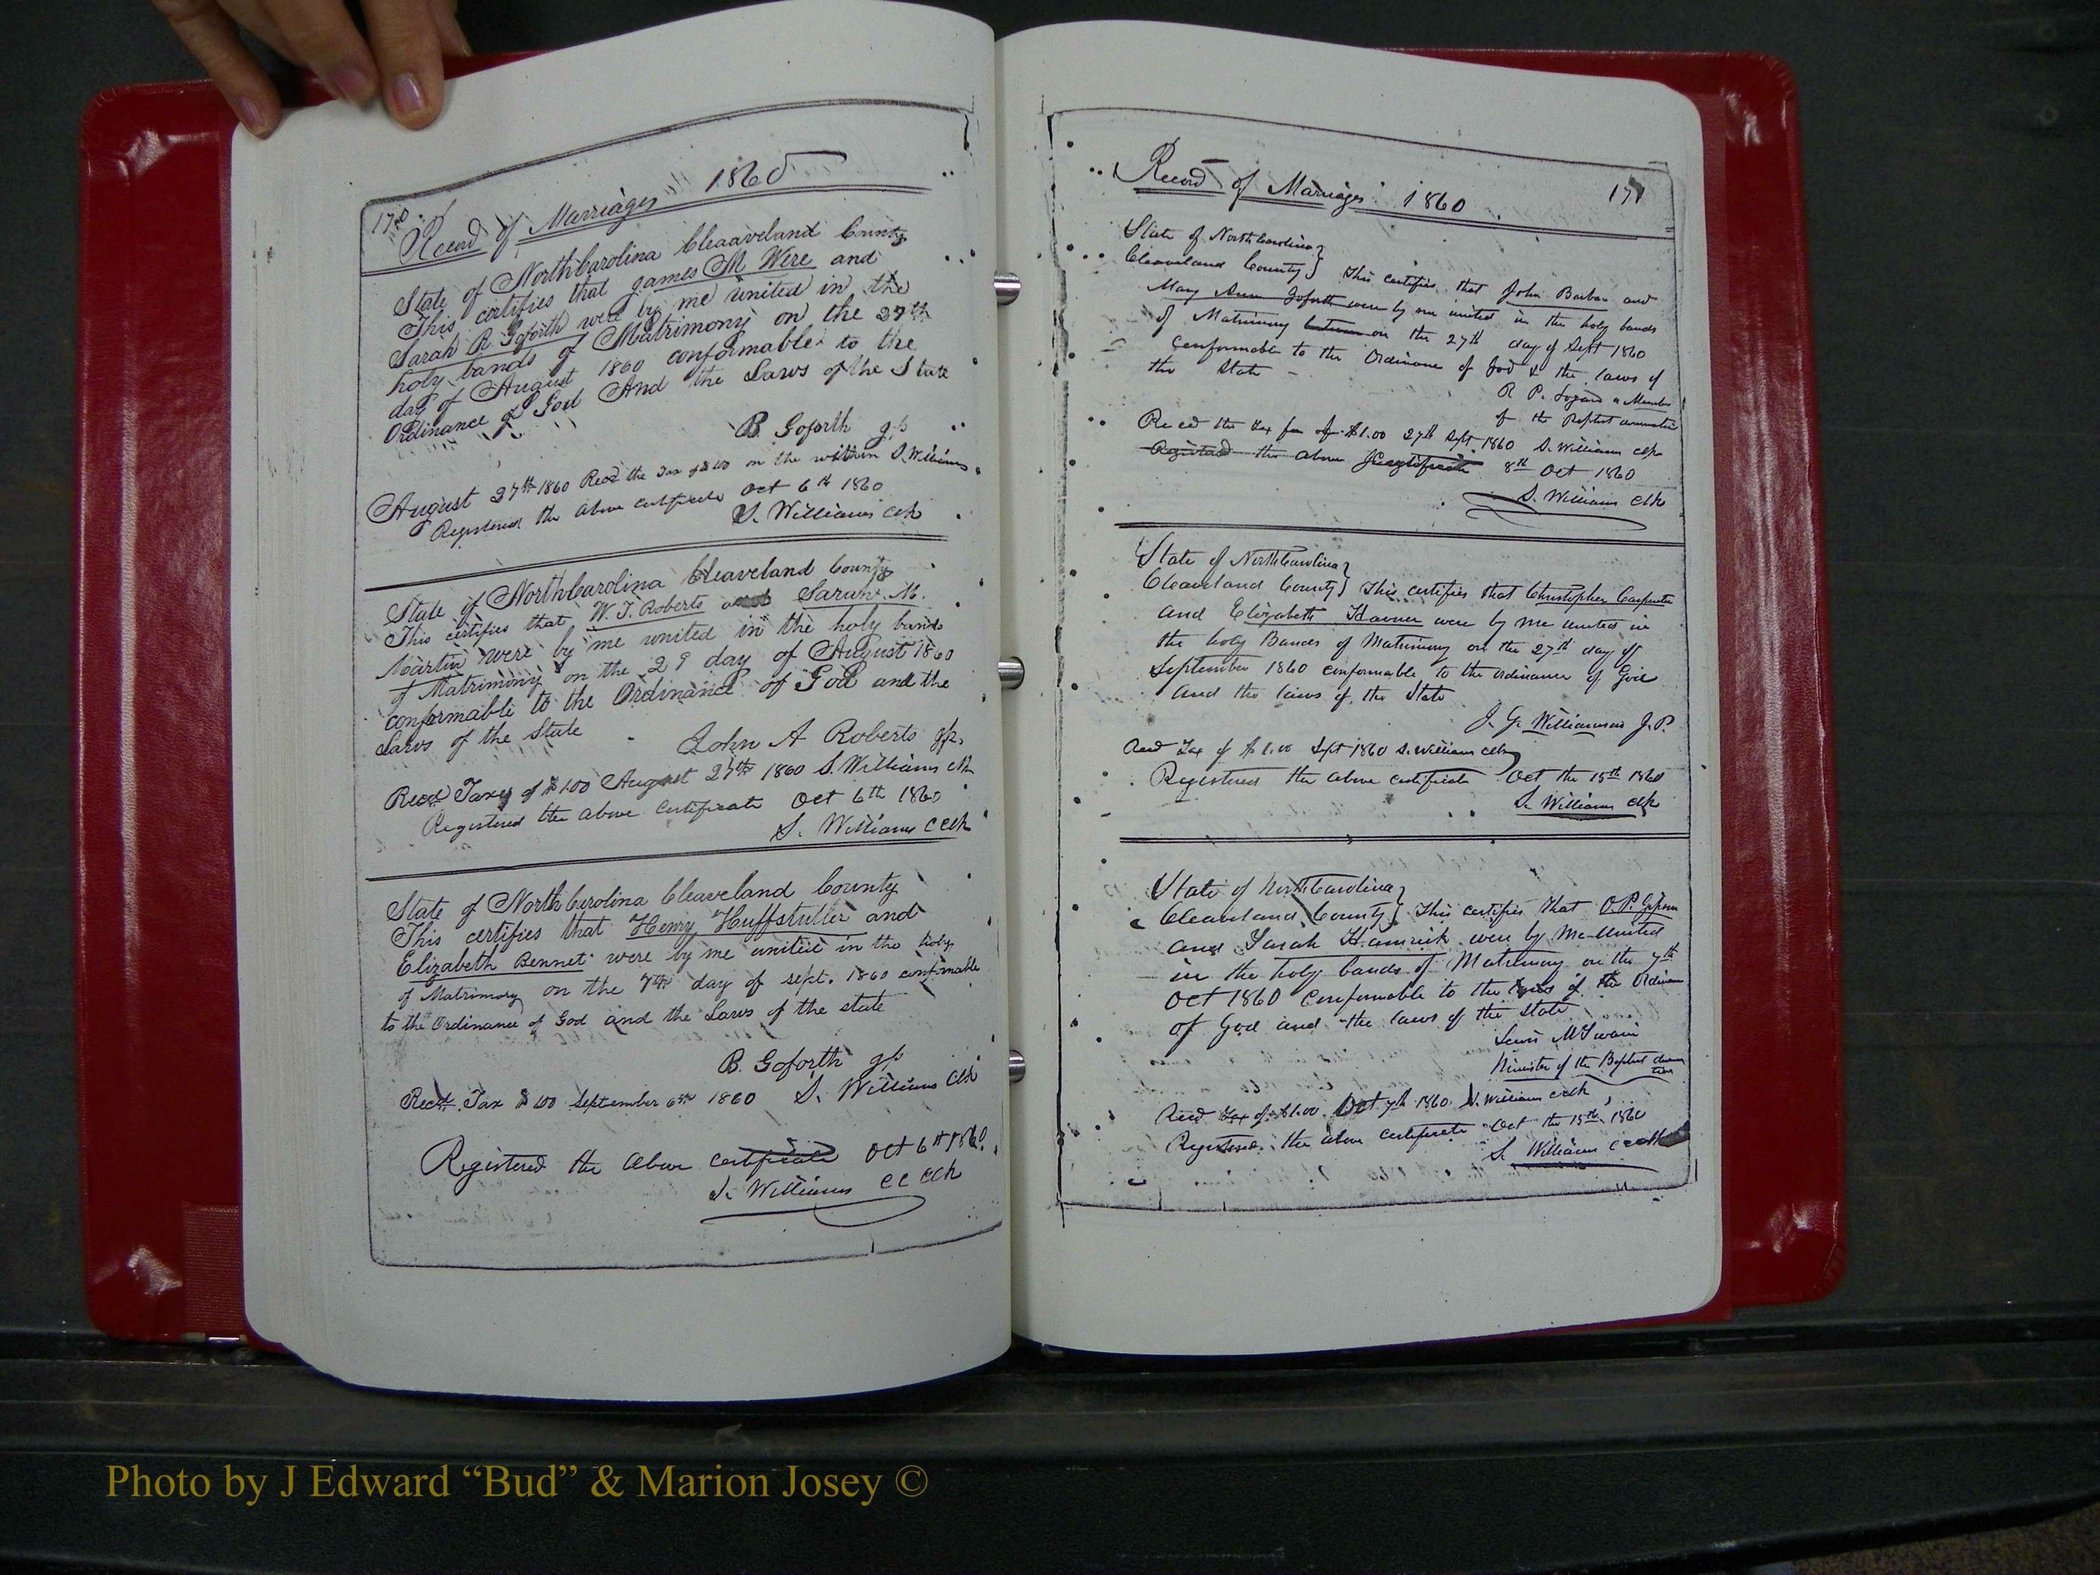 170
Record of Marriages 1860
State of North Carolina Cleaveland County
This certifies that James M Were and
Sarah R Goforth were by me united in the
holy bands of Matrimony on the 27th
day of August 1860 conformable to the
Ordinance of God And the Laws of the State
B. Goforth J.P.
August 27th 1860 Recd the Tax of $1 00 on the within S. Williams
Registered the above certificate Oct 6th 1860
S. Williams Clk
State of North Carolina Cleaveland County
This certifies that W. T. Roberts and M.
Martin were by me united in the holy bands
of Matrimony on the 29 day of August 1860
conformable to the Ordinance of God and the
Laws of the State
John A Roberts J.P.
Recd Taxes of $1.00 August 27th 1860 S. Williams Clk
Registered the above Certificate Oct 6th 1860
S. Williams C Clk
State of North Carolina Cleaveland County
This certifies that Henry Huffstutler and
Elizabeth Bennet were by me united in the holy
of Matrimony on the 7th day of sept. 1860 conformable
to the Ordinance of God and the Laws of the state
B. Goforth J.P.
Recd Tax $1 00 September 6th 1860 S. Williams Clk
Registered the above certificate Oct 6th 1860
S. Williams CC Clk
Record of Marriages 1860 171
State of North Carolina }
Cleaveland County } This certifies that John Barber and
Mary Ann Goforth were by me united in the holy bands
of Matrimony on the 27th day of Sept 1860
conformable to the Ordinance of God & the laws of
the State
R P. Logan a Member
of the Baptist
Recd the tax fee of $1.00 27th Sept. 1860 S. Williams clk
Registered the above certificate 8th Oct 1860
S. Williams Clk
State of North Carolina }
Cleaveland County } This certifies that Christopher Carpenter
and Elizabeth were by me united in
the holy Bands of Matrimony on the 27th day of
September 1860 conformable to the ordinance of God
and the laws of the State
J. G. Williamson J.P.
Recd Tax of $1.00 Sept 1860 S. Williams clk
Registered the above certificate Oct the 15th 1860
S. Williams clk
State of North Carolina }
Cleaveland County } This certifies that O. P. Gipson
and Sarah Hamrick were by Me United
in the holy bands of Matrimony on the 7th
Oct 1860 conformable to the of the Ordinance
of God and the laws of the State
Lewis McSwain
Minister of the Baptist
Recd tax of $1.00 Oct 7th 1860 S. Williams clk
Registered the above certificate Oct the 15th 1860
S. Williams C Clk
Photo by J Edward “Bud” & Marion Josey ©